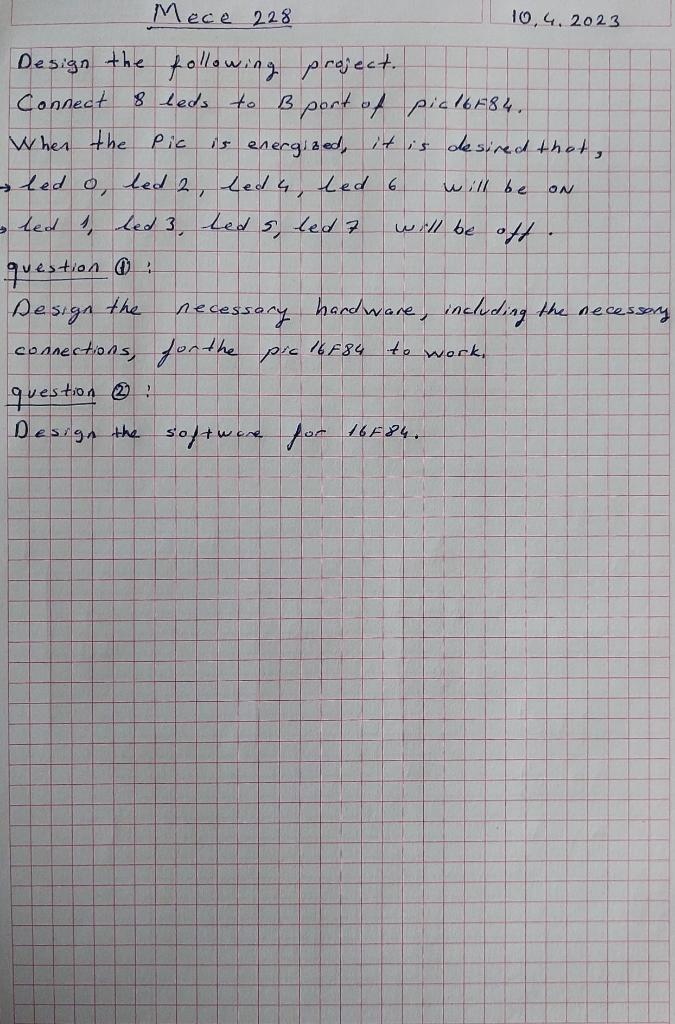 Mece 228
10.4.2023
Design the following project.
Connect 8 leds to B port of pic16F84.
When the Pic is energized, it is desired that,
→ led 0, led 2, led 4, led 6 will be ON
→ led 1, led 3, led 5, led 7 will be off.
question ① :
Design the necessary hardware, including the necessary
connections, for the pic 16F84 to work.
question ② :
Design the software for 16F84.